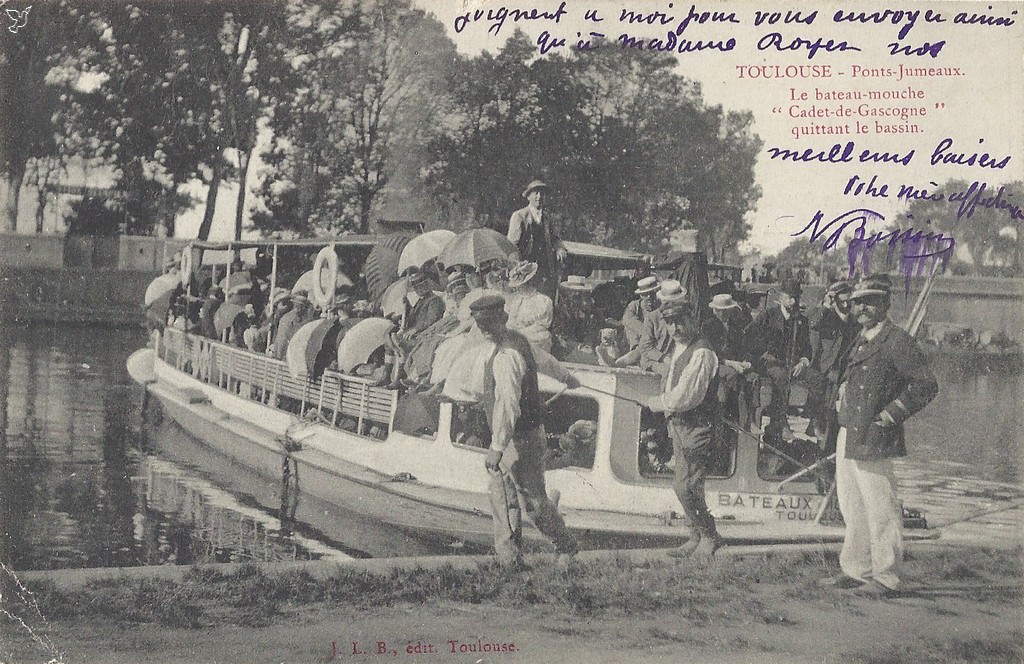 joignent a moi pour vous envoyer ainsi
qu'à madame Royer nos
TOULOUSE - Ponts-Jumeaux.
Le bateau-mouche
“ Cadet-de-Gascogne ”
quittant le bassin.
meilleurs baisers
Votre
BATEAUX
TOULOUSE
J. L. B., édit. Toulouse.